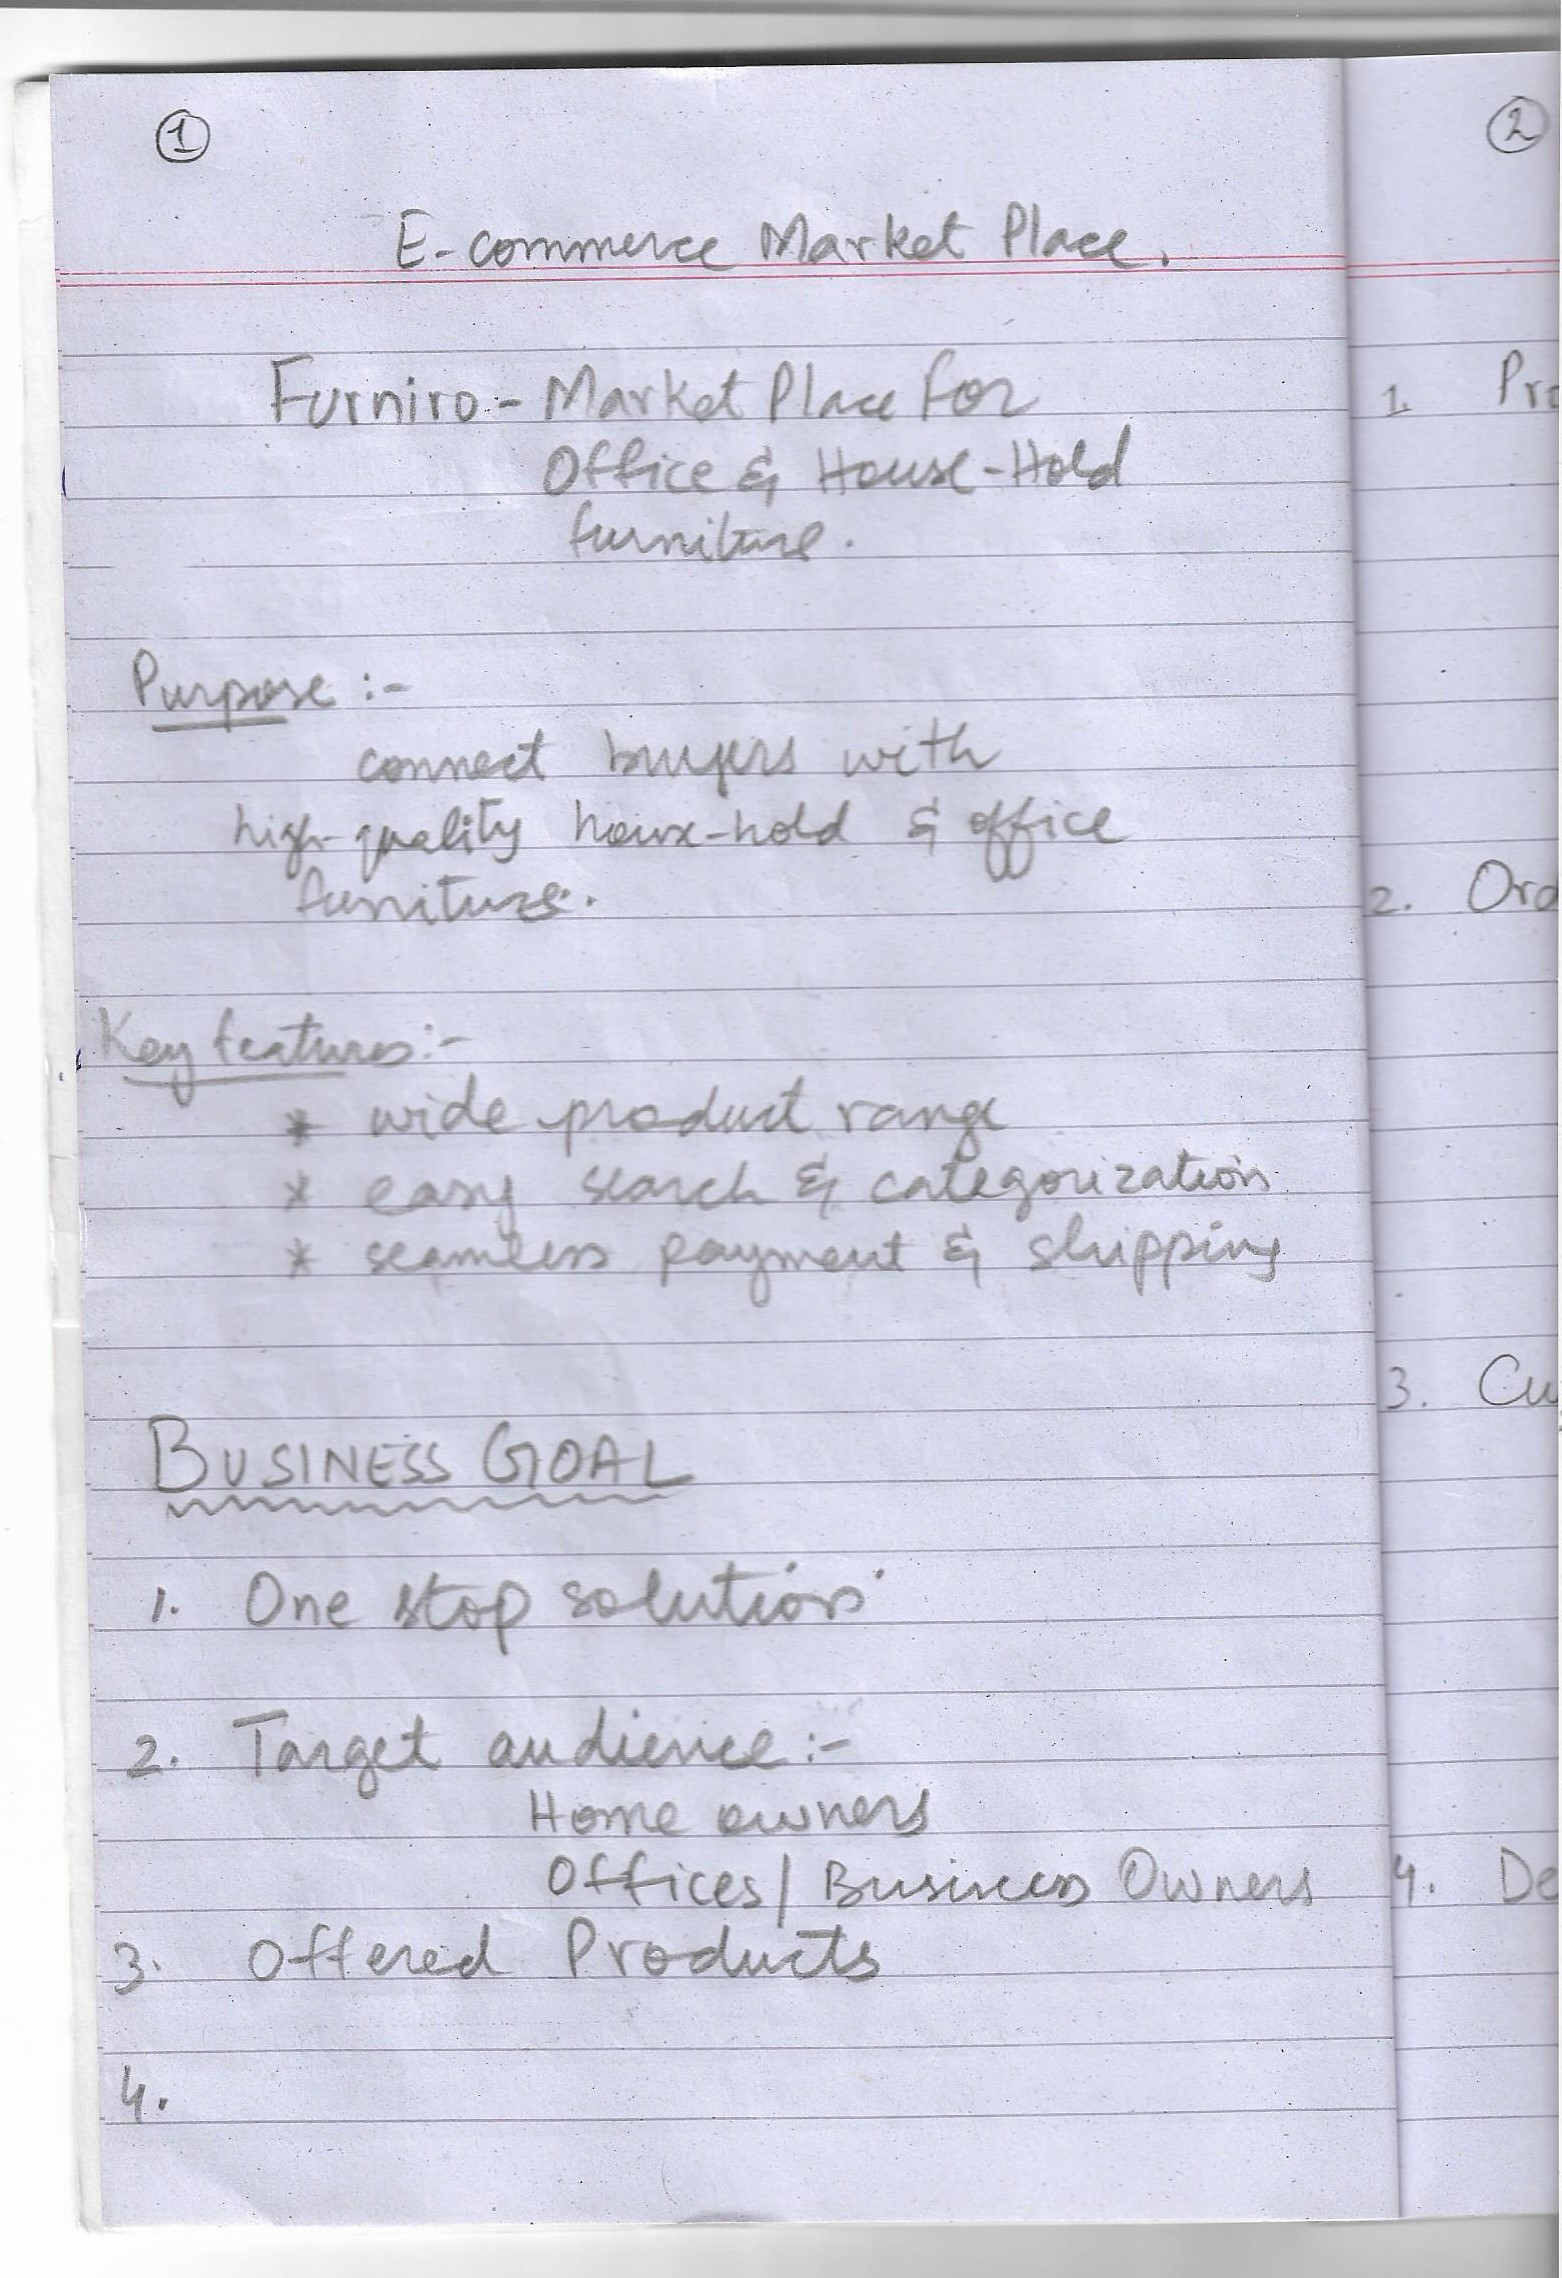 ①
E-commerce Market Place.
Furniro:- Market Place For
Office & House-Hold
furniture.
Purpose :-
connect buyers with
high-quality house-hold & office
furniture.
Key features:-
* wide product range
* easy search & categorization
* seamless payment & shipping
BUSINESS GOAL
1. One stop solution
2. Target audience :-
Home owners
Offices / Business Owners
3. Offered Products
4.
②
1. Pro
2. Ord
3. Cu
4. De